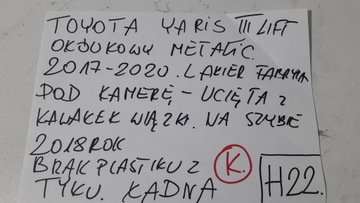 TOYOTA YARIS III LIFT
OKDUKOWY METALIC.
2017-2020. LAKIER FABRYK
POD KAMERĘ - UCIĘTA Z
KAWAŁEK WIĄZKI. NA SZYBIE
2018 ROK
BRAK PLASTIKU Z
TYKU. ŁADNA
K.
H22.